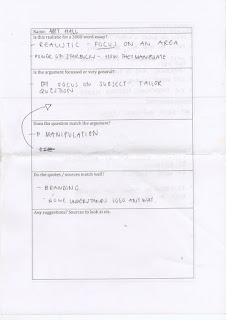 Name: ABBY HALL
Is this realistic for a 3000 word essay?
- REALISTIC - FOCUS ON AN AREA
POWER OF STARBUCKS - HOW THEY MANIPULATE
Is the argument focussed or very general?
FOCUS ON SUBJECT - TAILOR
QUESTION
Does the question match the argument?
MANIPULATION
Do the quotes / sources match well?
- BRANDING
NAOMI
Any suggestions? Sources to look at etc.